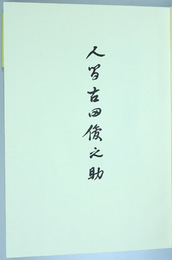 人間古田俊之助